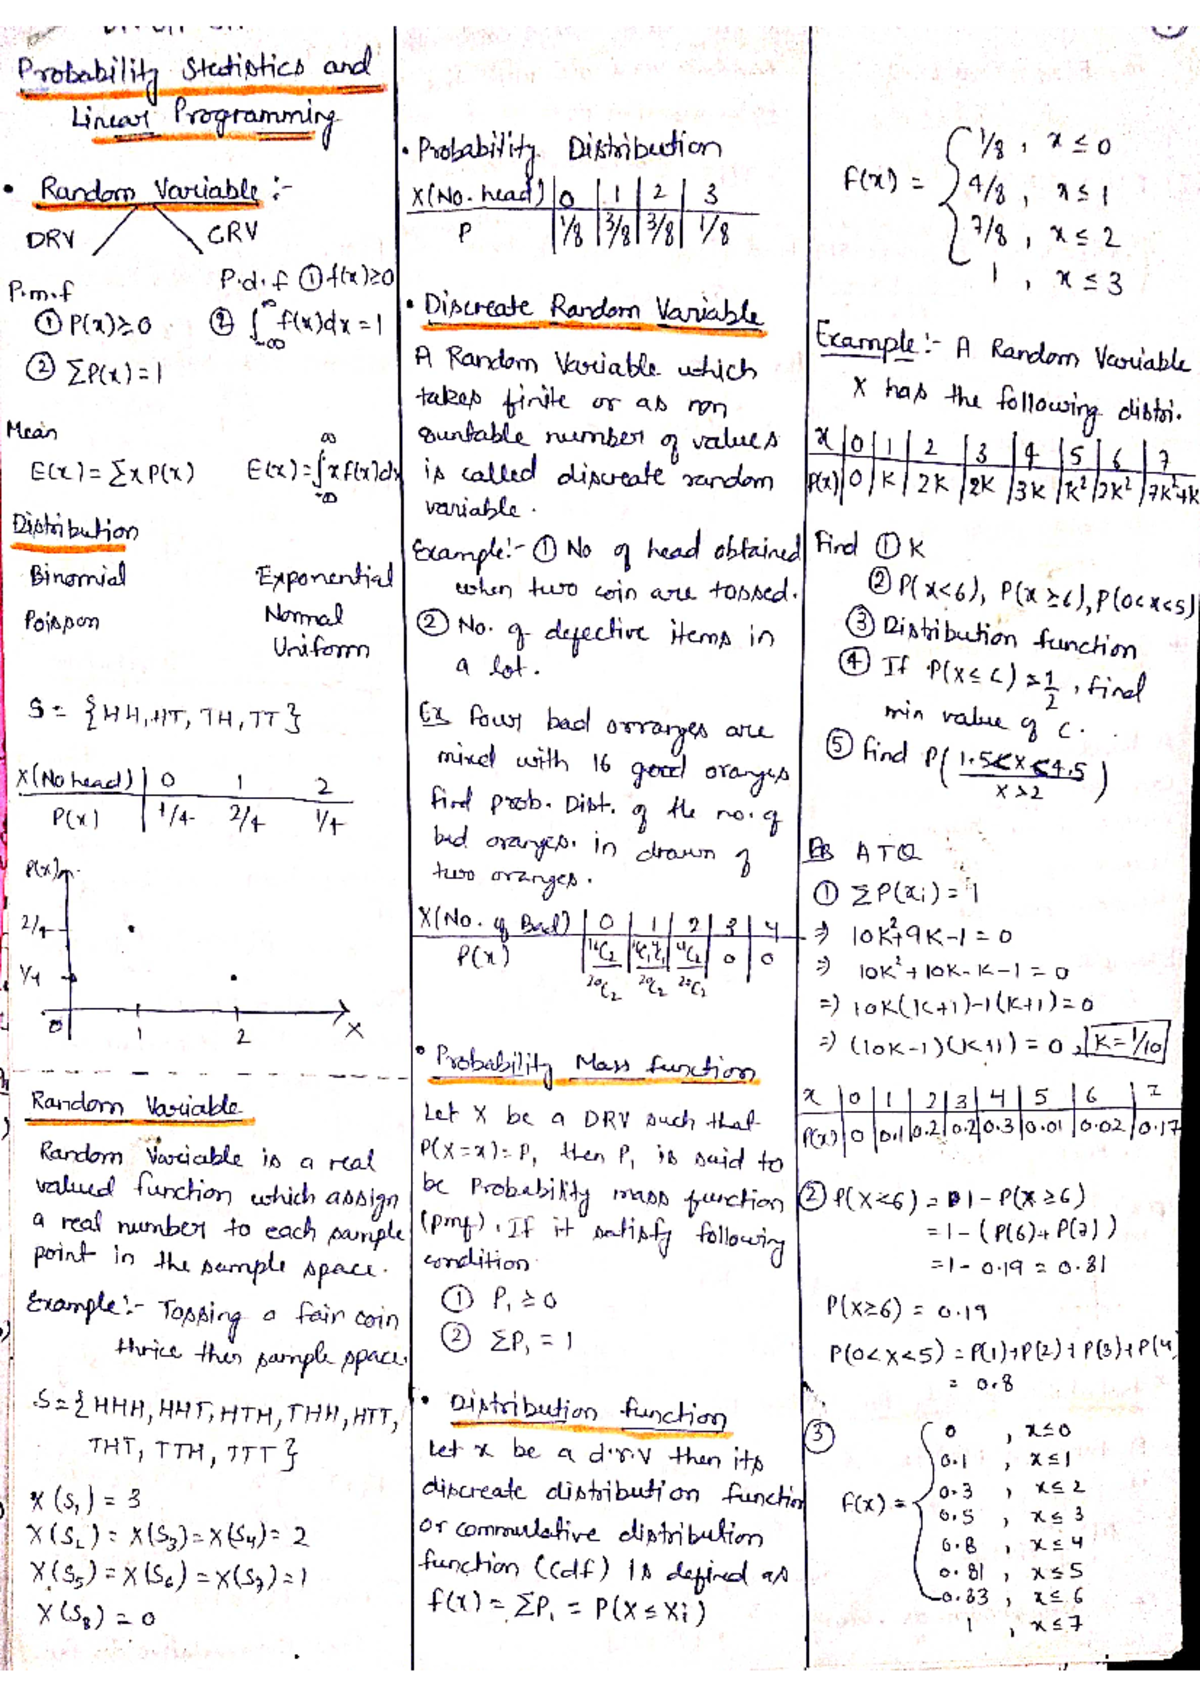 Probability Statistics and
Linear Programming
• Random Variable :-
DRV CRV
P.m.f
① P(x)≥0
② ΣP(x)=1
P.d.f ① f(x)≥0
② ∫_{-∞}^{∞} f(x)dx = 1
Mean
E(x) = Σx P(x) E(x) = ∫_{-∞}^{∞} x f(x)dx
Distribution
Binomial Exponential
Poisson Normal
Uniform
S = {HH, HT, TH, TT}
X(No head) | 0 1 2
P(x) | 1/4 2/4 1/4
P(x)
2/4
1/4
0 1 2 X
Random Variable
Random Variable is a real
valued function which assign
a real number to each sample
point in the sample space.
Example:- Tossing a fair coin
thrice then sample space.
S = {HHH, HHT, HTH, THH, HTT,
THT, TTH, TTT}
X(S₁) = 3
X(S₂) = X(S₃) = X(S₄) = 2
X(S₅) = X(S₆) = X(S₇) = 1
X(S₈) = 0
• Probability Distribution
X(No. head) | 0 | 1 | 2 | 3
P | 1/8 | 3/8 | 3/8 | 1/8
• Discreate Random Variable
A Random Variable which
takes finite or as non
countable number of values
is called discreate random
variable.
Example:- ① No of head obtained
when two coin are tossed.
② No. of defective items in
a lot.
Ex four bad orranges are
mixed with 16 good oranges
find prob. Dist. of the no. of
bad oranges. in drawn of
two oranges.
X(No. of Bad) | 0 | 1 | 2 | 3 | 4
P(x) | ¹⁶C₂/²⁰C₂ | ⁴C₁/²⁰C₂ | ⁴C₂/²⁰C₂ | 0 | 0
• Probability Mass function
Let X be a DRV such that
P(X=x)=P, then P, is said to
be Probability mass function
(pmf). If it satisfy following
condition
① P, ≥ 0
② ΣP, = 1
• Distribution function
Let x be a d.r.v then its
discreate distribution function
or commulative distribution
function (cdf) is defined as
f(x) = ΣP, = P(X ≤ Xi)
f(x) = { 1/8 , x ≤ 0
4/8 , x ≤ 1
7/8 , x ≤ 2
1 , x ≤ 3
Example:- A Random Variable
X has the following distri.
x | 0 | 1 | 2 | 3 | 4 | 5 | 6 | 7
P(x) | 0 | K | 2K | 2K | 3K | K² | 2K² | 7K²+K
Find ① K
② P(x<6), P(x≥6), P(0<x<5)
③ Distribution function
④ If P(X≤C) > 1/2, find
min value of C.
⑤ find P( 1.5<X<4.5 / X>2 )
ATQ
① ΣP(xi) = 1
⇒ 10K²+9K-1 = 0
⇒ 10K²+10K-K-1 = 0
⇒ 10K(K+1)-1(K+1)=0
⇒ (10K-1)(K+1) = 0, K=1/10
x | 0 | 1 | 2 | 3 | 4 | 5 | 6 | 7
P(x) | 0 | 0.1 | 0.2 | 0.2 | 0.3 | 0.01 | 0.02 | 0.17
② P(X<6) = 1 - P(X≥6)
= 1 - (P(6)+P(7))
= 1 - 0.19 = 0.81
P(X≥6) = 0.19
P(0<X<5) = P(1)+P(2)+P(3)+P(4)
= 0.8
③ f(x) = { 0 , x≤0
0.1 , x≤1
0.3 , x≤2
0.5 , x≤3
0.8 , x≤4
0.81 , x≤5
0.83 , x≤6
1 , x≤7